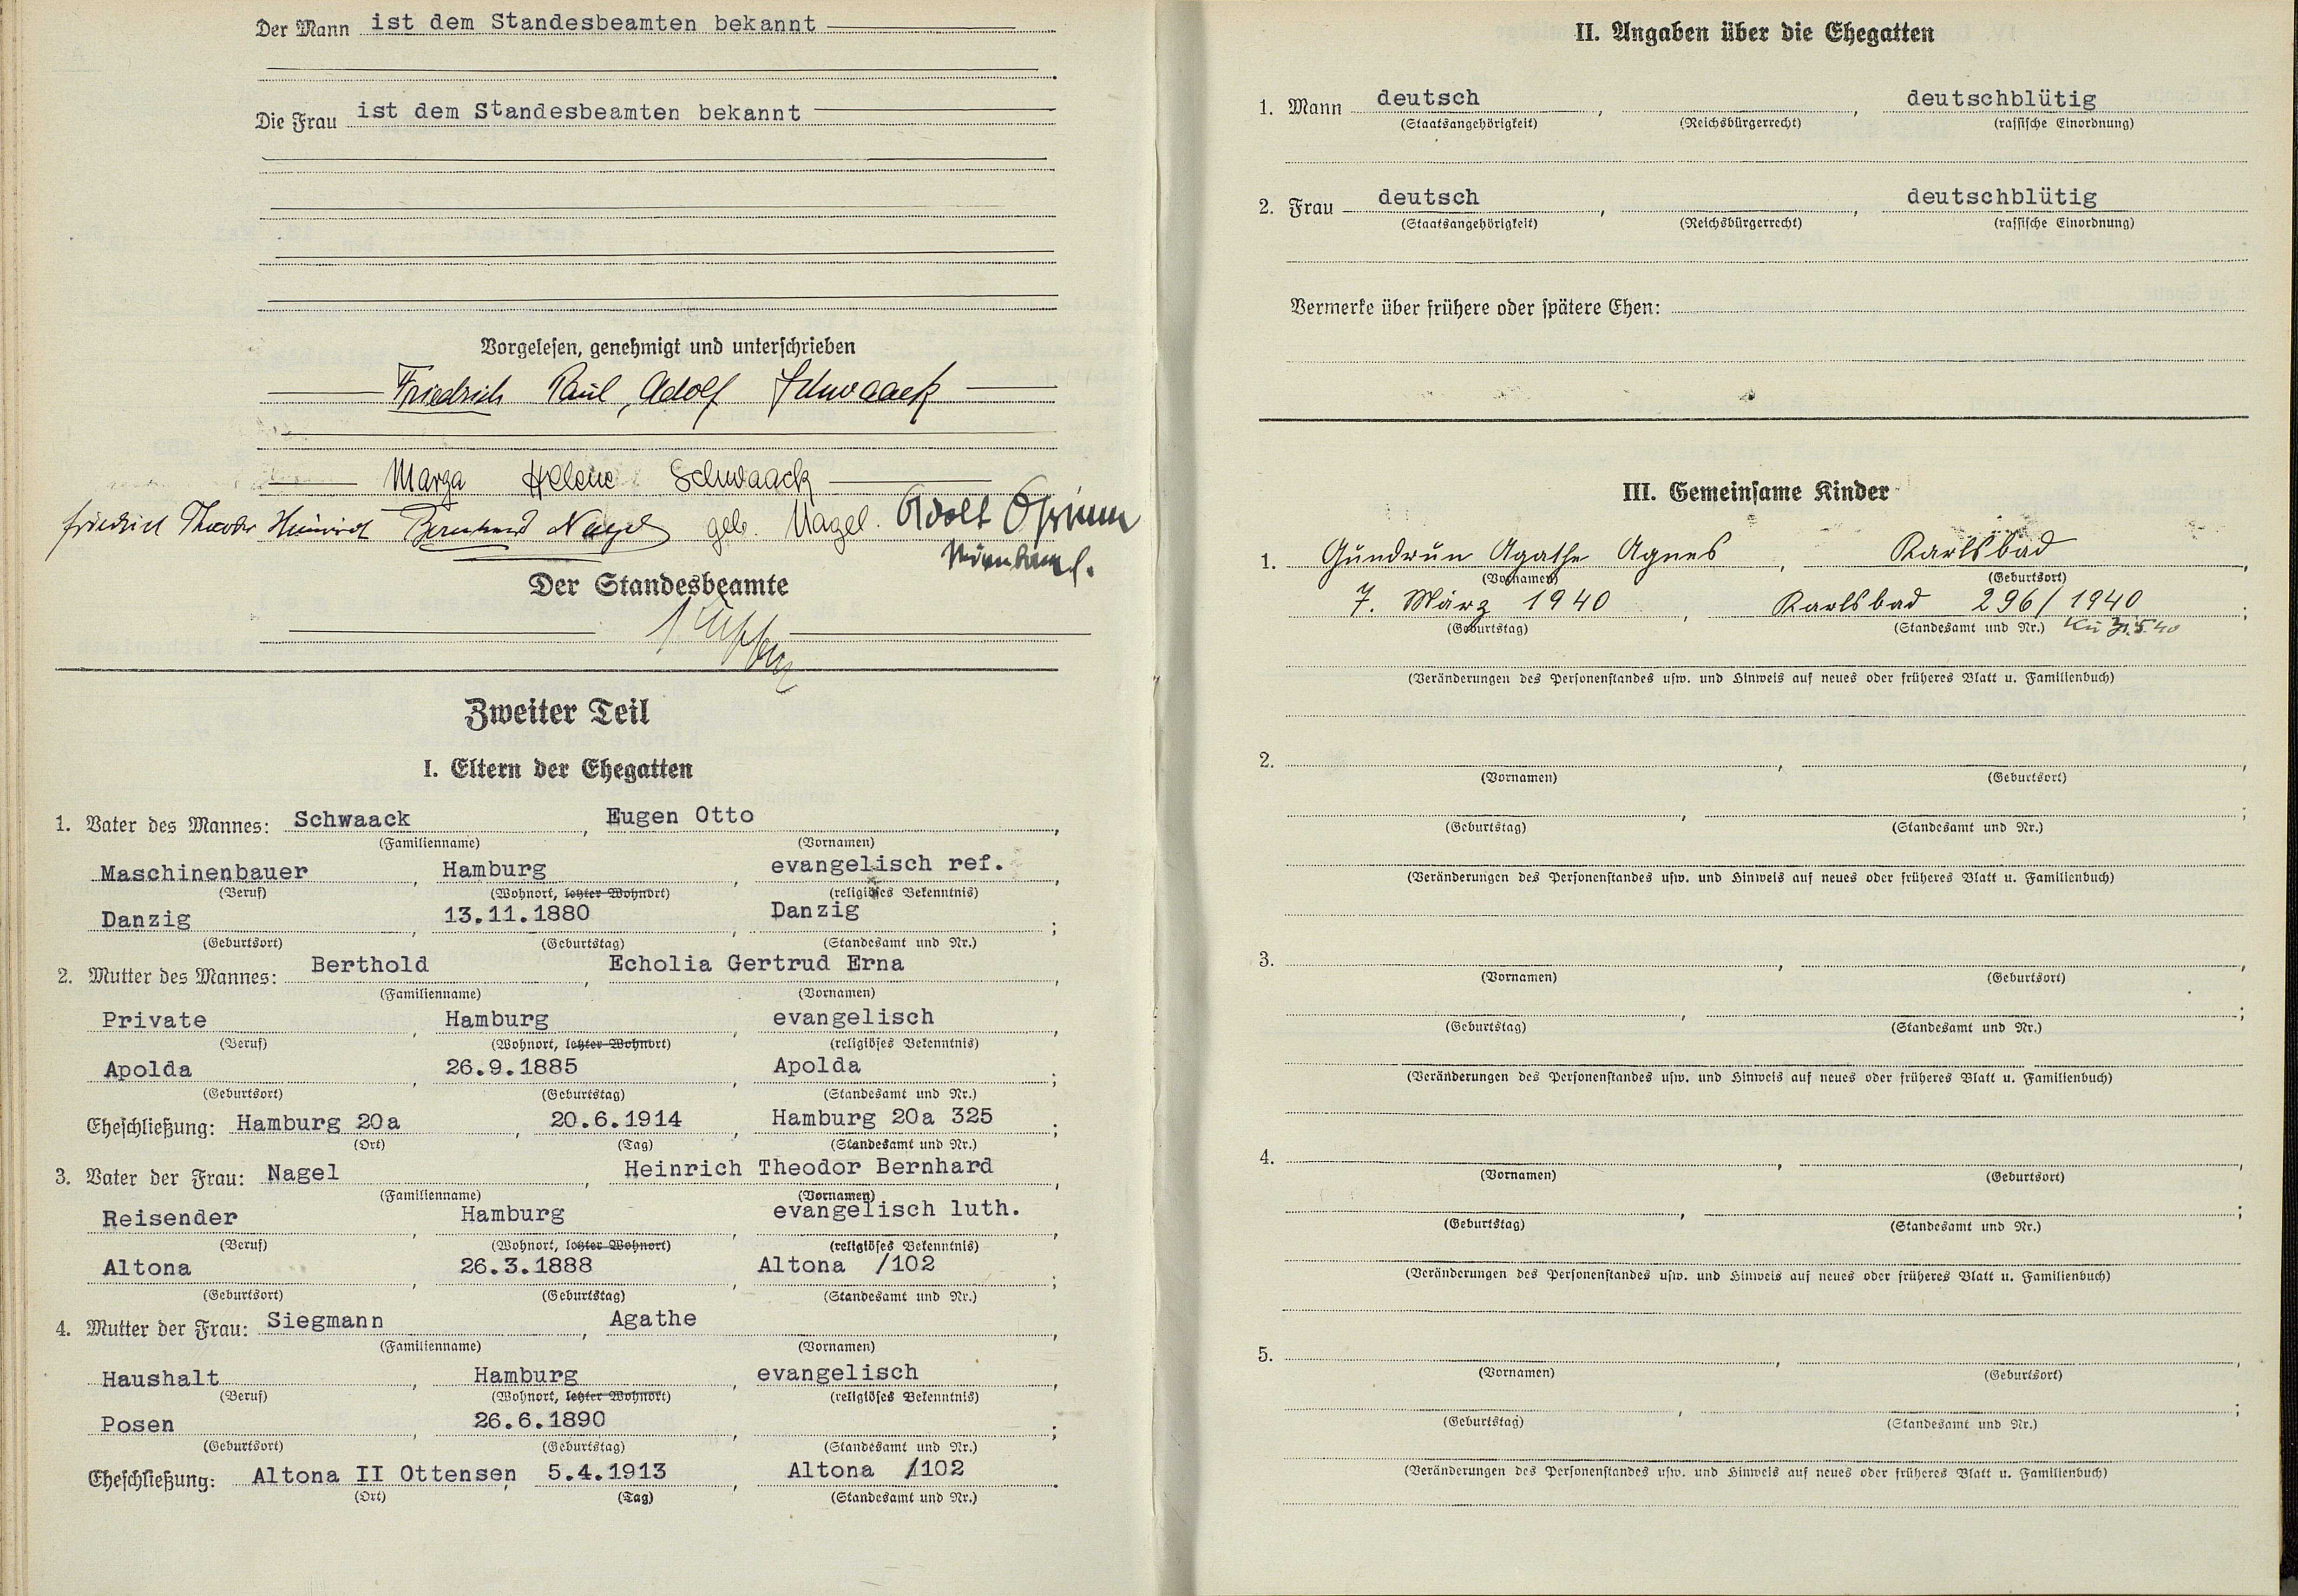 Der Mann ist dem Standesbeamten bekannt
Die Frau ist dem Standesbeamten bekannt
Vorgelesen, genehmigt und unterschrieben
Friedrich Paul, Adolf Schwaack
Marga Helene Schwaack
geb. Nagel.
Friedrich Theodor Heinrich Bernhard Nagel
Adolf
Der Standesbeamte
Zweiter Teil
I. Eltern der Ehegatten
1. Vater des Mannes: Schwaack, Eugen Otto,
(Familienname) (Vornamen)
Maschinenbauer, Hamburg, evangelisch ref.,
(Beruf) (Wohnort, letzter Wohnort) (religiöses Bekenntnis)
Danzig, 13.11.1880, Danzig;
(Geburtsort) (Geburtstag) (Standesamt und Nr.)
2. Mutter des Mannes: Berthold, Echolia Gertrud Erna,
(Familienname) (Vornamen)
Private, Hamburg, evangelisch,
(Beruf) (Wohnort, letzter Wohnort) (religiöses Bekenntnis)
Apolda, 26.9.1885, Apolda;
(Geburtsort) (Geburtstag) (Standesamt und Nr.)
Eheschließung: Hamburg 20a, 20.6.1914, Hamburg 20a 325;
(Ort) (Tag) (Standesamt und Nr.)
3. Vater der Frau: Nagel, Heinrich Theodor Bernhard,
(Familienname) (Vornamen)
Reisender, Hamburg, evangelisch luth.,
(Beruf) (Wohnort, letzter Wohnort) (religiöses Bekenntnis)
Altona, 26.3.1888, Altona /102;
(Geburtsort) (Geburtstag) (Standesamt und Nr.)
4. Mutter der Frau: Siegmann, Agathe,
(Familienname) (Vornamen)
Haushalt, Hamburg, evangelisch,
(Beruf) (Wohnort, letzter Wohnort) (religiöses Bekenntnis)
Posen, 26.6.1890, ;
(Geburtsort) (Geburtstag) (Standesamt und Nr.)
Eheschließung: Altona II Ottensen, 5.4.1913, Altona /102.
(Ort) (Tag) (Standesamt und Nr.)
II. Angaben über die Ehegatten
1. Mann deutsch, , deutschblütig
(Staatsangehörigkeit) (Reichsbürgerrecht) (rassische Einordnung)
2. Frau deutsch, , deutschblütig
(Staatsangehörigkeit) (Reichsbürgerrecht) (rassische Einordnung)
Vermerke über frühere oder spätere Ehen:
III. Gemeinsame Kinder
1. Gundrun Agathe Agnes, Karlsbad,
(Vornamen) (Geburtsort)
7. März 1940, Karlsbad 296/1940;
(Geburtstag) (Standesamt und Nr.)
(Veränderungen des Personenstandes usw. und Hinweis auf neues oder früheres Blatt u. Familienbuch)
2. , ,
(Vornamen) (Geburtsort)
, ;
(Geburtstag) (Standesamt und Nr.)
(Veränderungen des Personenstandes usw. und Hinweis auf neues oder früheres Blatt u. Familienbuch)
3. , ,
(Vornamen) (Geburtsort)
, ;
(Geburtstag) (Standesamt und Nr.)
(Veränderungen des Personenstandes usw. und Hinweis auf neues oder früheres Blatt u. Familienbuch)
4. , ,
(Vornamen) (Geburtsort)
, ;
(Geburtstag) (Standesamt und Nr.)
(Veränderungen des Personenstandes usw. und Hinweis auf neues oder früheres Blatt u. Familienbuch)
5. , ,
(Vornamen) (Geburtsort)
, ;
(Geburtstag) (Standesamt und Nr.)
(Veränderungen des Personenstandes usw. und Hinweis auf neues oder früheres Blatt u. Familienbuch)